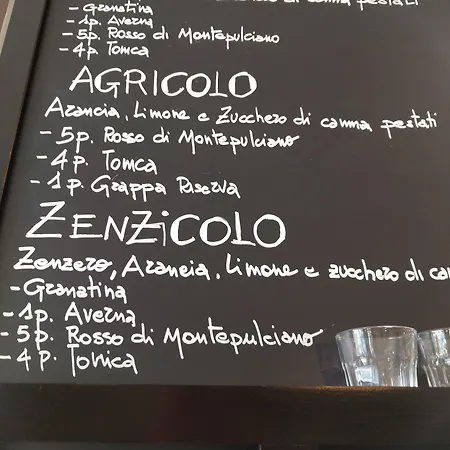 di canna pestati
- Granatina
- 1p. Averna
- 5p. Rosso di Montepulciano
- 4p. Tonica
AGRICOLO
Arancia, Limone e Zucchero di canna pestati
- 5p. Rosso di Montepulciano
- 4p. Tonica
- 1p. Grappa Riserva
ZENZiCOLO
Zenzero, Arancia, Limone e zucchero di ca
- Granatina
- 1p. Averna
- 5p. Rosso di Montepulciano
- 4p. Tonica